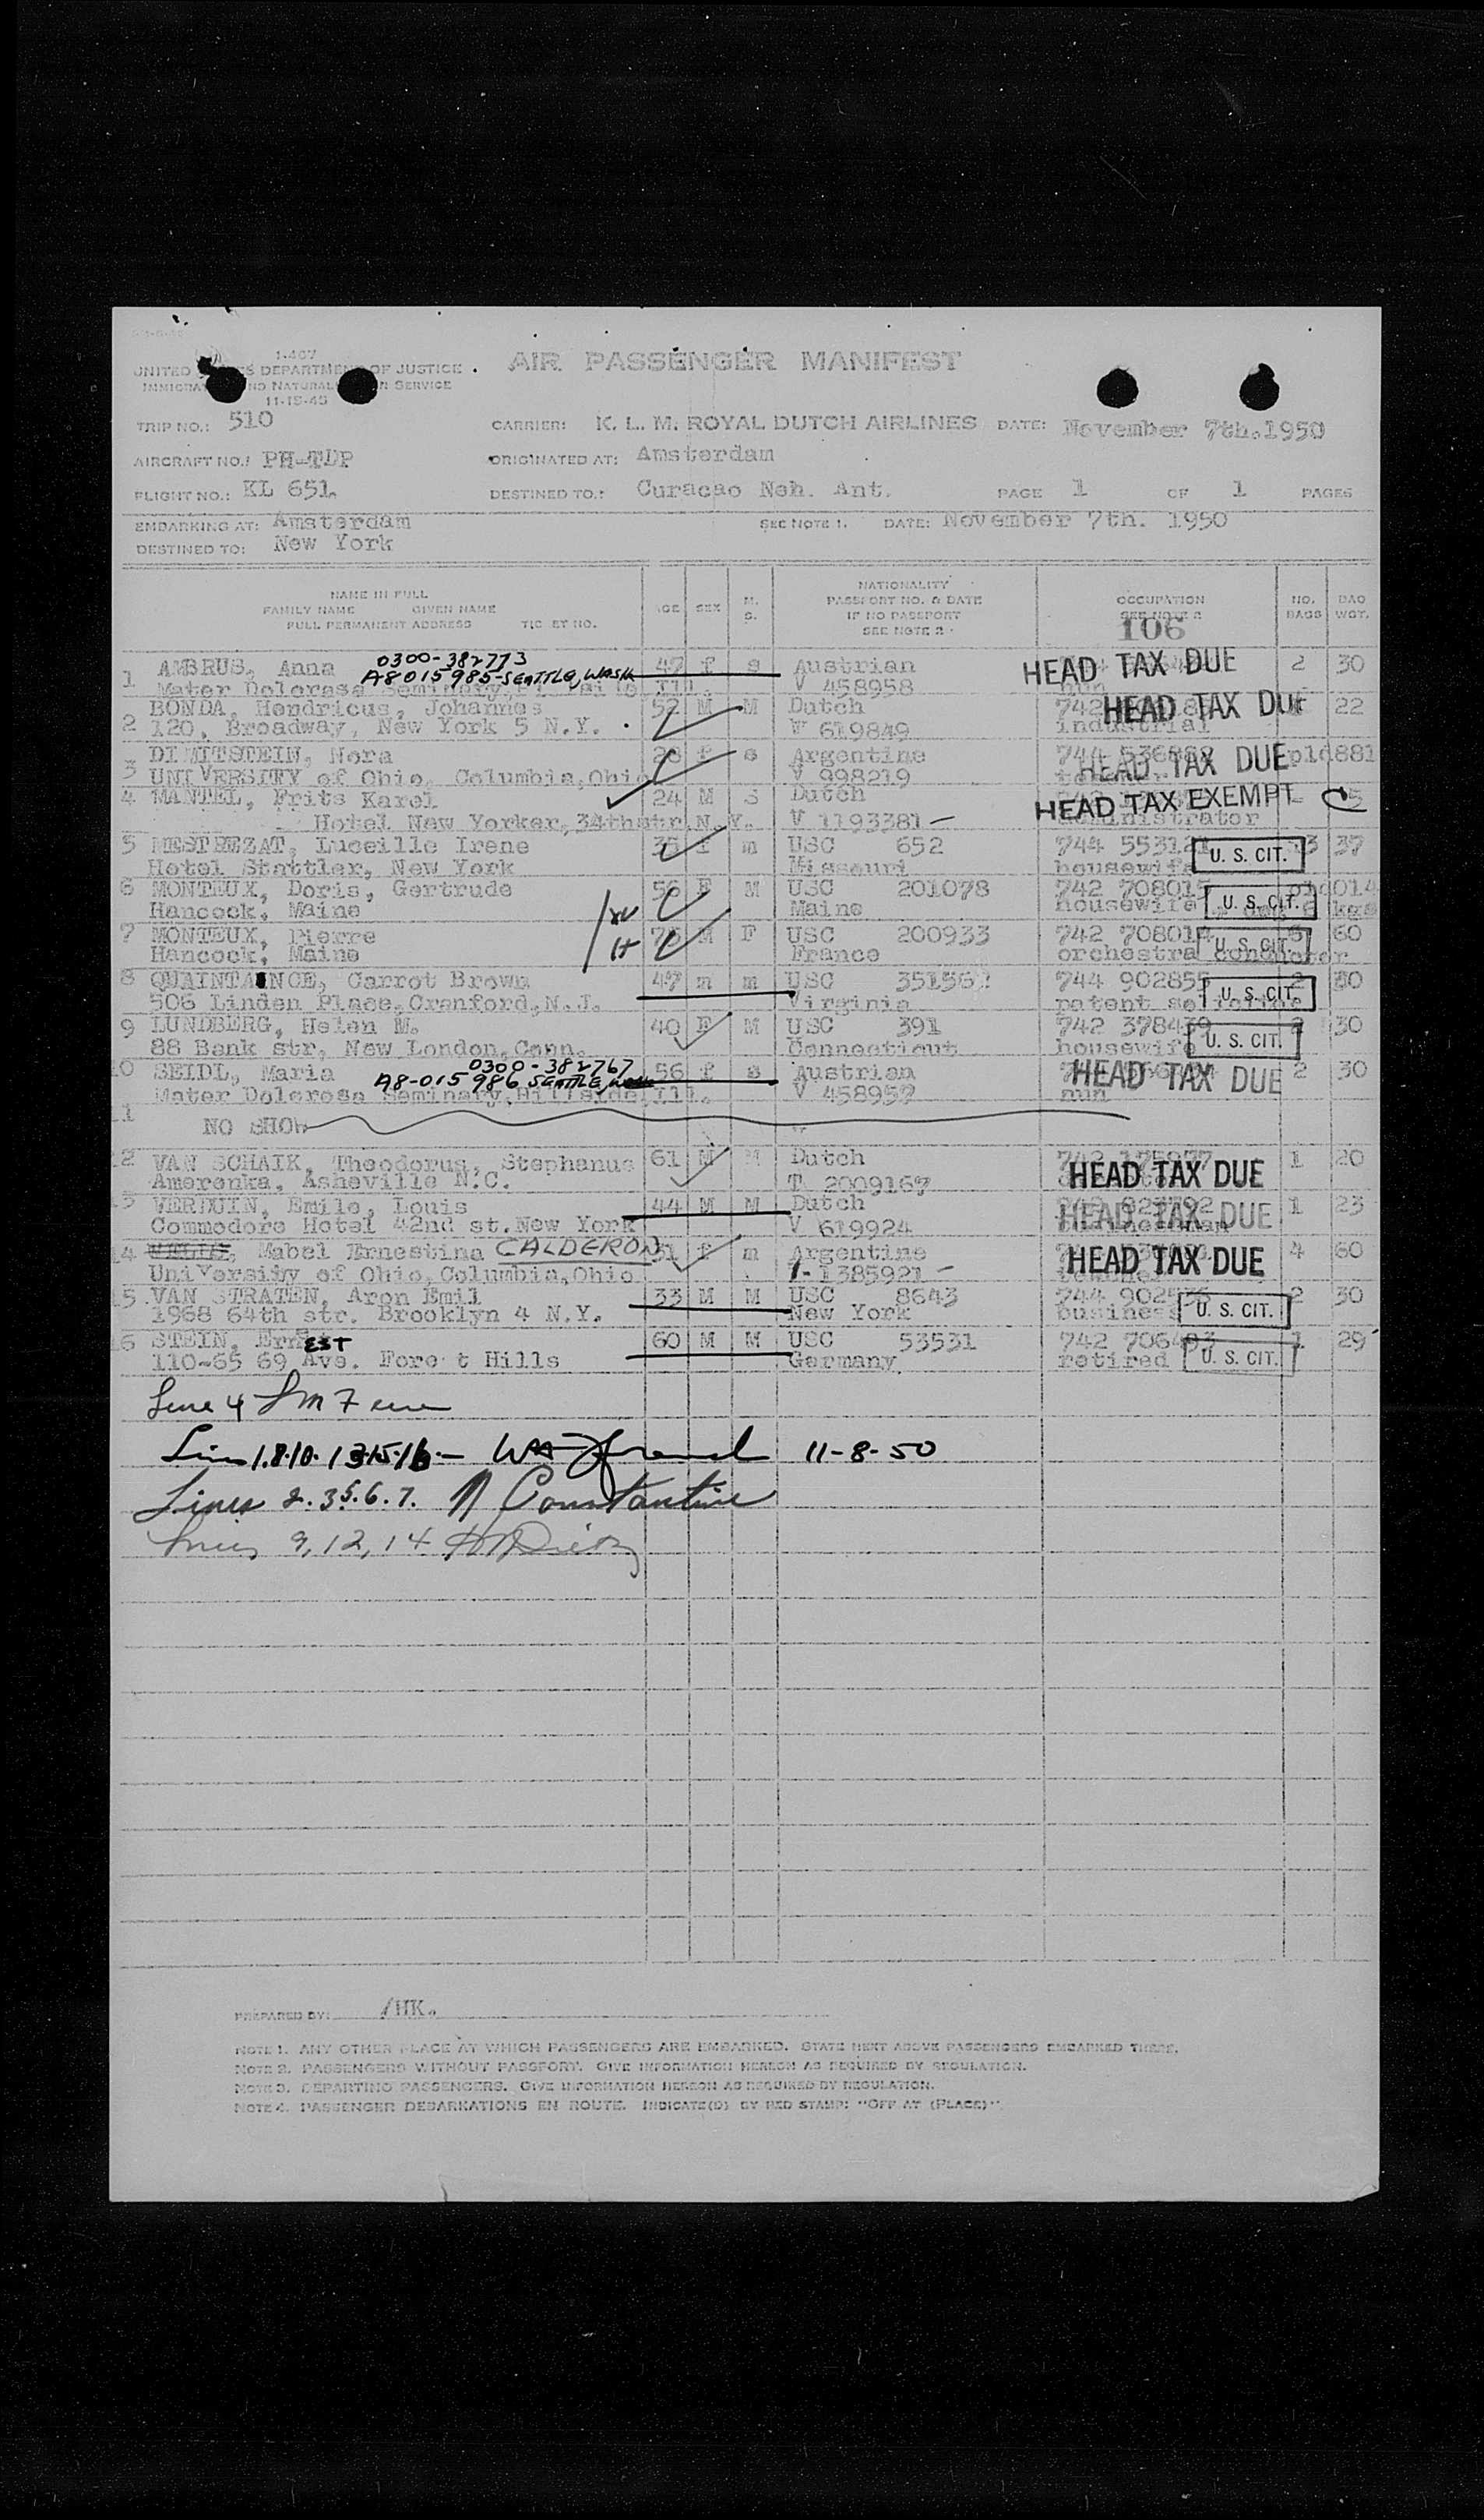 1-407
UNITED STATES DEPARTMENT OF JUSTICE
IMMIGRATION AND NATURALIZATION SERVICE
11-15-45
AIR PASSENGER MANIFEST
TRIP NO.: 510
CARRIER: K. L. M. ROYAL DUTCH AIRLINES DATE: November 7th.1950
AIRCRAFT NO.: PH-TDP
ORIGINATED AT: Amsterdam
FLIGHT NO.: KL 651.
DESTINED TO.: Curacao Neh. Ant. PAGE 1 OF 1 PAGES
EMBARKING AT: Amsterdam
SEE NOTE 1. DATE: November 7th. 1950
DESTINED TO: New York
NAME IN FULL
FAMILY NAME GIVEN NAME
FULL PERMANENT ADDRESS
AGE SEX M. S.
NATIONALITY
PASSPORT NO. & DATE
IF NO PASSPORT
SEE NOTE 2
OCCUPATION
SEE NOTE 2
NO. BAGS BAG WGT.
106
0300-382773
1 AMBRUS, Anna 47 f s Austrian HEAD TAX DUE 2 30
A8015985-SEATTLE, WASH
Mater Dolorosa Seminary, Ill. V 458958 nun
2 BONDA, Hendricus, Johannes 52 M M Dutch 742 HEAD TAX DUE 22
120, Broadway, New York 5 N.Y. 619849 industrial
3 DIMITSTEIN, Nora 28 f s Argentine 744 HEAD TAX DUE
UNIVERSITY of Ohio, Columbia, Ohio V 998219
4 MANTEL, Frits Karel 24 M S Dutch HEAD TAX EXEMPT
Hotel New Yorker, 34th str.N.Y. V 1193381 - administrator
5 MESTREZAT, Luceille Irene 35 f m USC 652 744 U. S. CIT. 37
Hotel Stattler, New York Missouri housewife
6 MONTEUX, Doris, Gertrude 56 F M USC 201078 742 708015 U. S. CIT.
Hancock, Maine Maine housewife kgs
7 MONTEUX, Pierre M F USC 200933 742 708014 U. S. CIT. 60
Hancock, Maine France orchestra conductor
8 QUAINTANCE, Carrot Brown 47 m m USC 744 902855 U. S. CIT. 2 30
506 Linden Place, Cranford, N.J. Virginia patent
9 LUNDBERG, Helen M. 40 F M USC 391 742 U. S. CIT. 2 30
88 Bank str, New London, Conn. Connecticut housewife
0300-382767
10 SEIDL, Maria 56 f s Austrian HEAD TAX DUE 2 30
A8-015986 SEATTLE, WASH
Mater Dolorosa Seminary, Hillside, Ill. V nun
11 NO SHOW
12 VAN SCHAIK, Theodorus, Stephanus 61 M M Dutch HEAD TAX DUE 1 20
Amerenka, Asheville N.C.
13 VERDUIN, Emile, Louis 44 M M Dutch HEAD TAX DUE 1 23
Commodore Hotel 42nd st. New York V 619924
14 Mabel Ernestina CALDERON 31 f m Argentine HEAD TAX DUE 4 60
University of Ohio, Columbia, Ohio 1385921 -
15 VAN STRATEN, Aron Emil 33 M M USC 8643 744 U. S. CIT. 2 30
1968 64th str. Brooklyn 4 N.Y. New York business
16 STEIN, ErnEST 60 M M USC 53531 742 U. S. CIT. 1 29
110-65 69 Ave. Forest Hills Germany retired
Line 4
Lines 1.8.10.13.15.16 - 11-8-50
Lines 2.3.5.6.7. N Constantine
Lines 9, 12, 14
PREPARED BY: /HK.
NOTE 1. ANY OTHER PLACE AT WHICH PASSENGERS ARE EMBARKED. STATE NEXT ABOVE PASSENGERS EMBARKED THERE.
NOTE 2. PASSENGERS WITHOUT PASSPORT. GIVE INFORMATION HEREON AS REQUIRED BY REGULATION.
NOTE 3. DEPARTING PASSENGERS. GIVE INFORMATION HEREON AS REQUIRED BY REGULATION.
NOTE 4. PASSENGER DEBARKATIONS EN ROUTE. INDICATE(D) BY RED STAMP: "OFF AT (PLACE)".